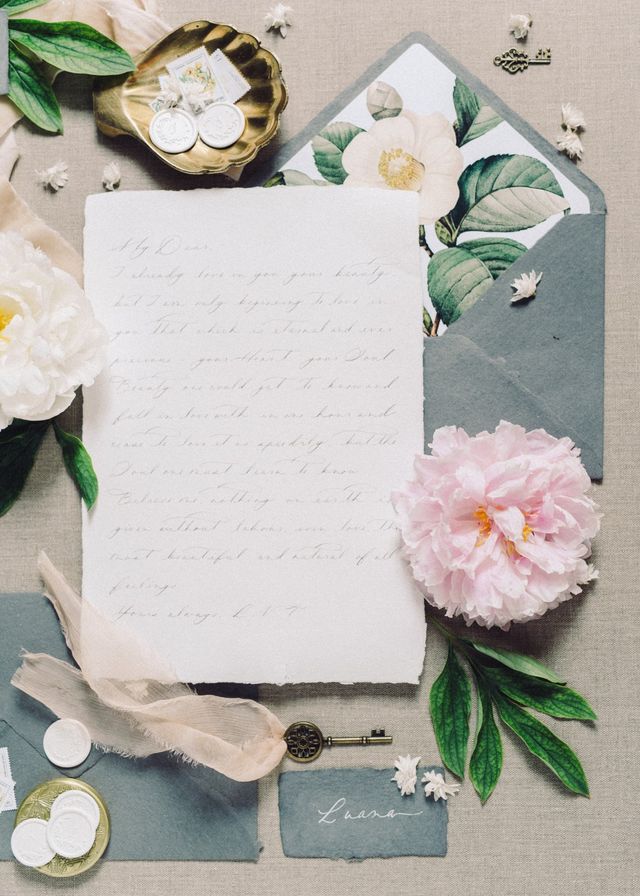 My Dear,
I already love in you your beauty
but I am only beginning to love in
you that which is eternal and ever
precious - your Heart, your Soul.
Beauty one could get to know and
fall in love with in one hour and
cease to love it as speedily but the
Soul one must learn to know.
Believe me, nothing on earth is
given without labour, even love, the
most beautiful and natural of all
feelings.
Yours always, L. N. T
Luana